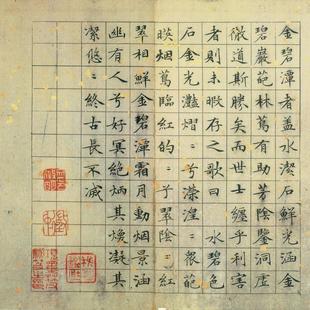 金碧潭者蓋水潔石鮮光涵金
碧巖葩林蔦有助芳陰鑒洞虛
徹道斯勝矣而世士纏乎利害
者則未暇存之歌曰 水碧色
石金光灩熠〻兮瀠湟〻衆葩
映烟蔦臨紅的〻兮翠陰〻紅
翠相鮮金碧潭霜月動烟景涵
幽有人兮好冥絶炳其煥凝其
潔悠〻終古長不滅